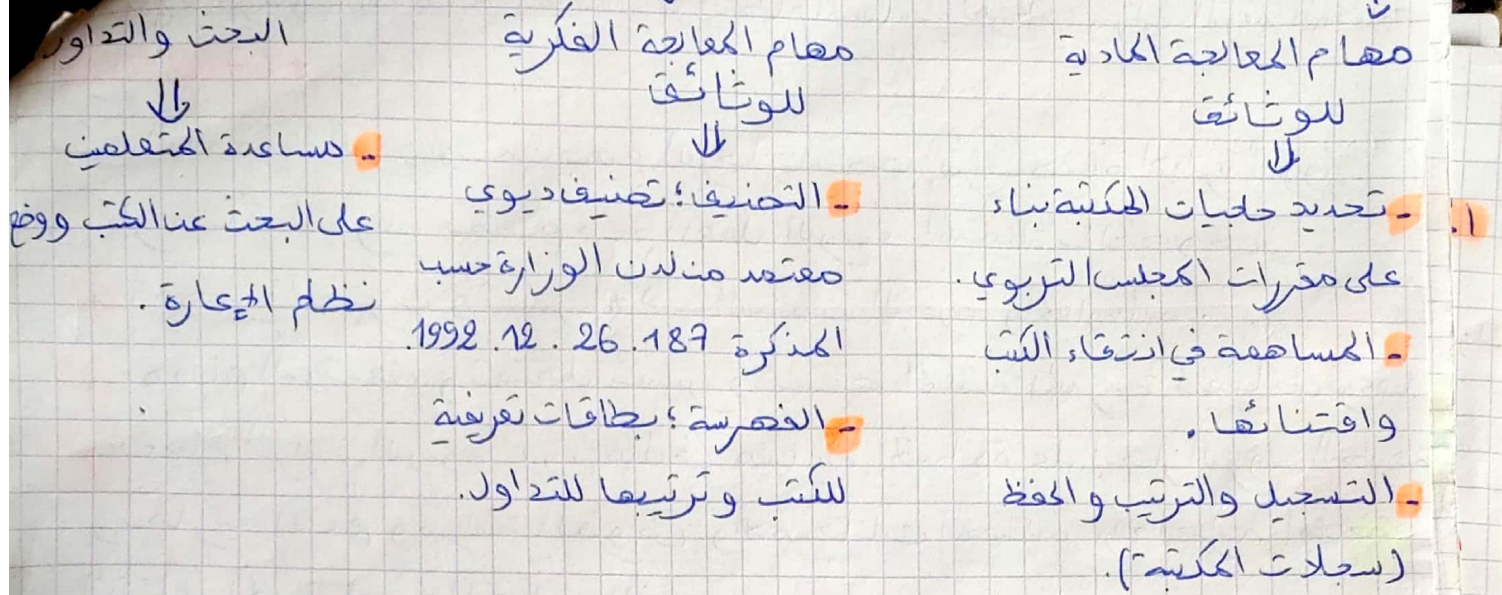 مهام المعالجة المادية
للوثائق
⇓
1. - تحديد حاجيات المكتبة بناء
على مقررات المجلس التربوي.
- المساهمة في انتقاء الكتب
واقتنائها.
- التسجيل والترتيب والحفظ
(سجلات المكتبة).
مهام المعالجة الفكرية
للوثائق
⇓
- التصنيف؛ تصنيف ديوي
معتمد من لدن الوزارة حسب
المذكرة 187. 26. 12. 1992.
- الفهرسة؛ بطاقات تعريفية
للكتب وترتيبها للتداول.
البحث والتداول
⇓
- مساعدة المتعلمين
على البحث عن الكتب ووضع
نظام الإعارة.